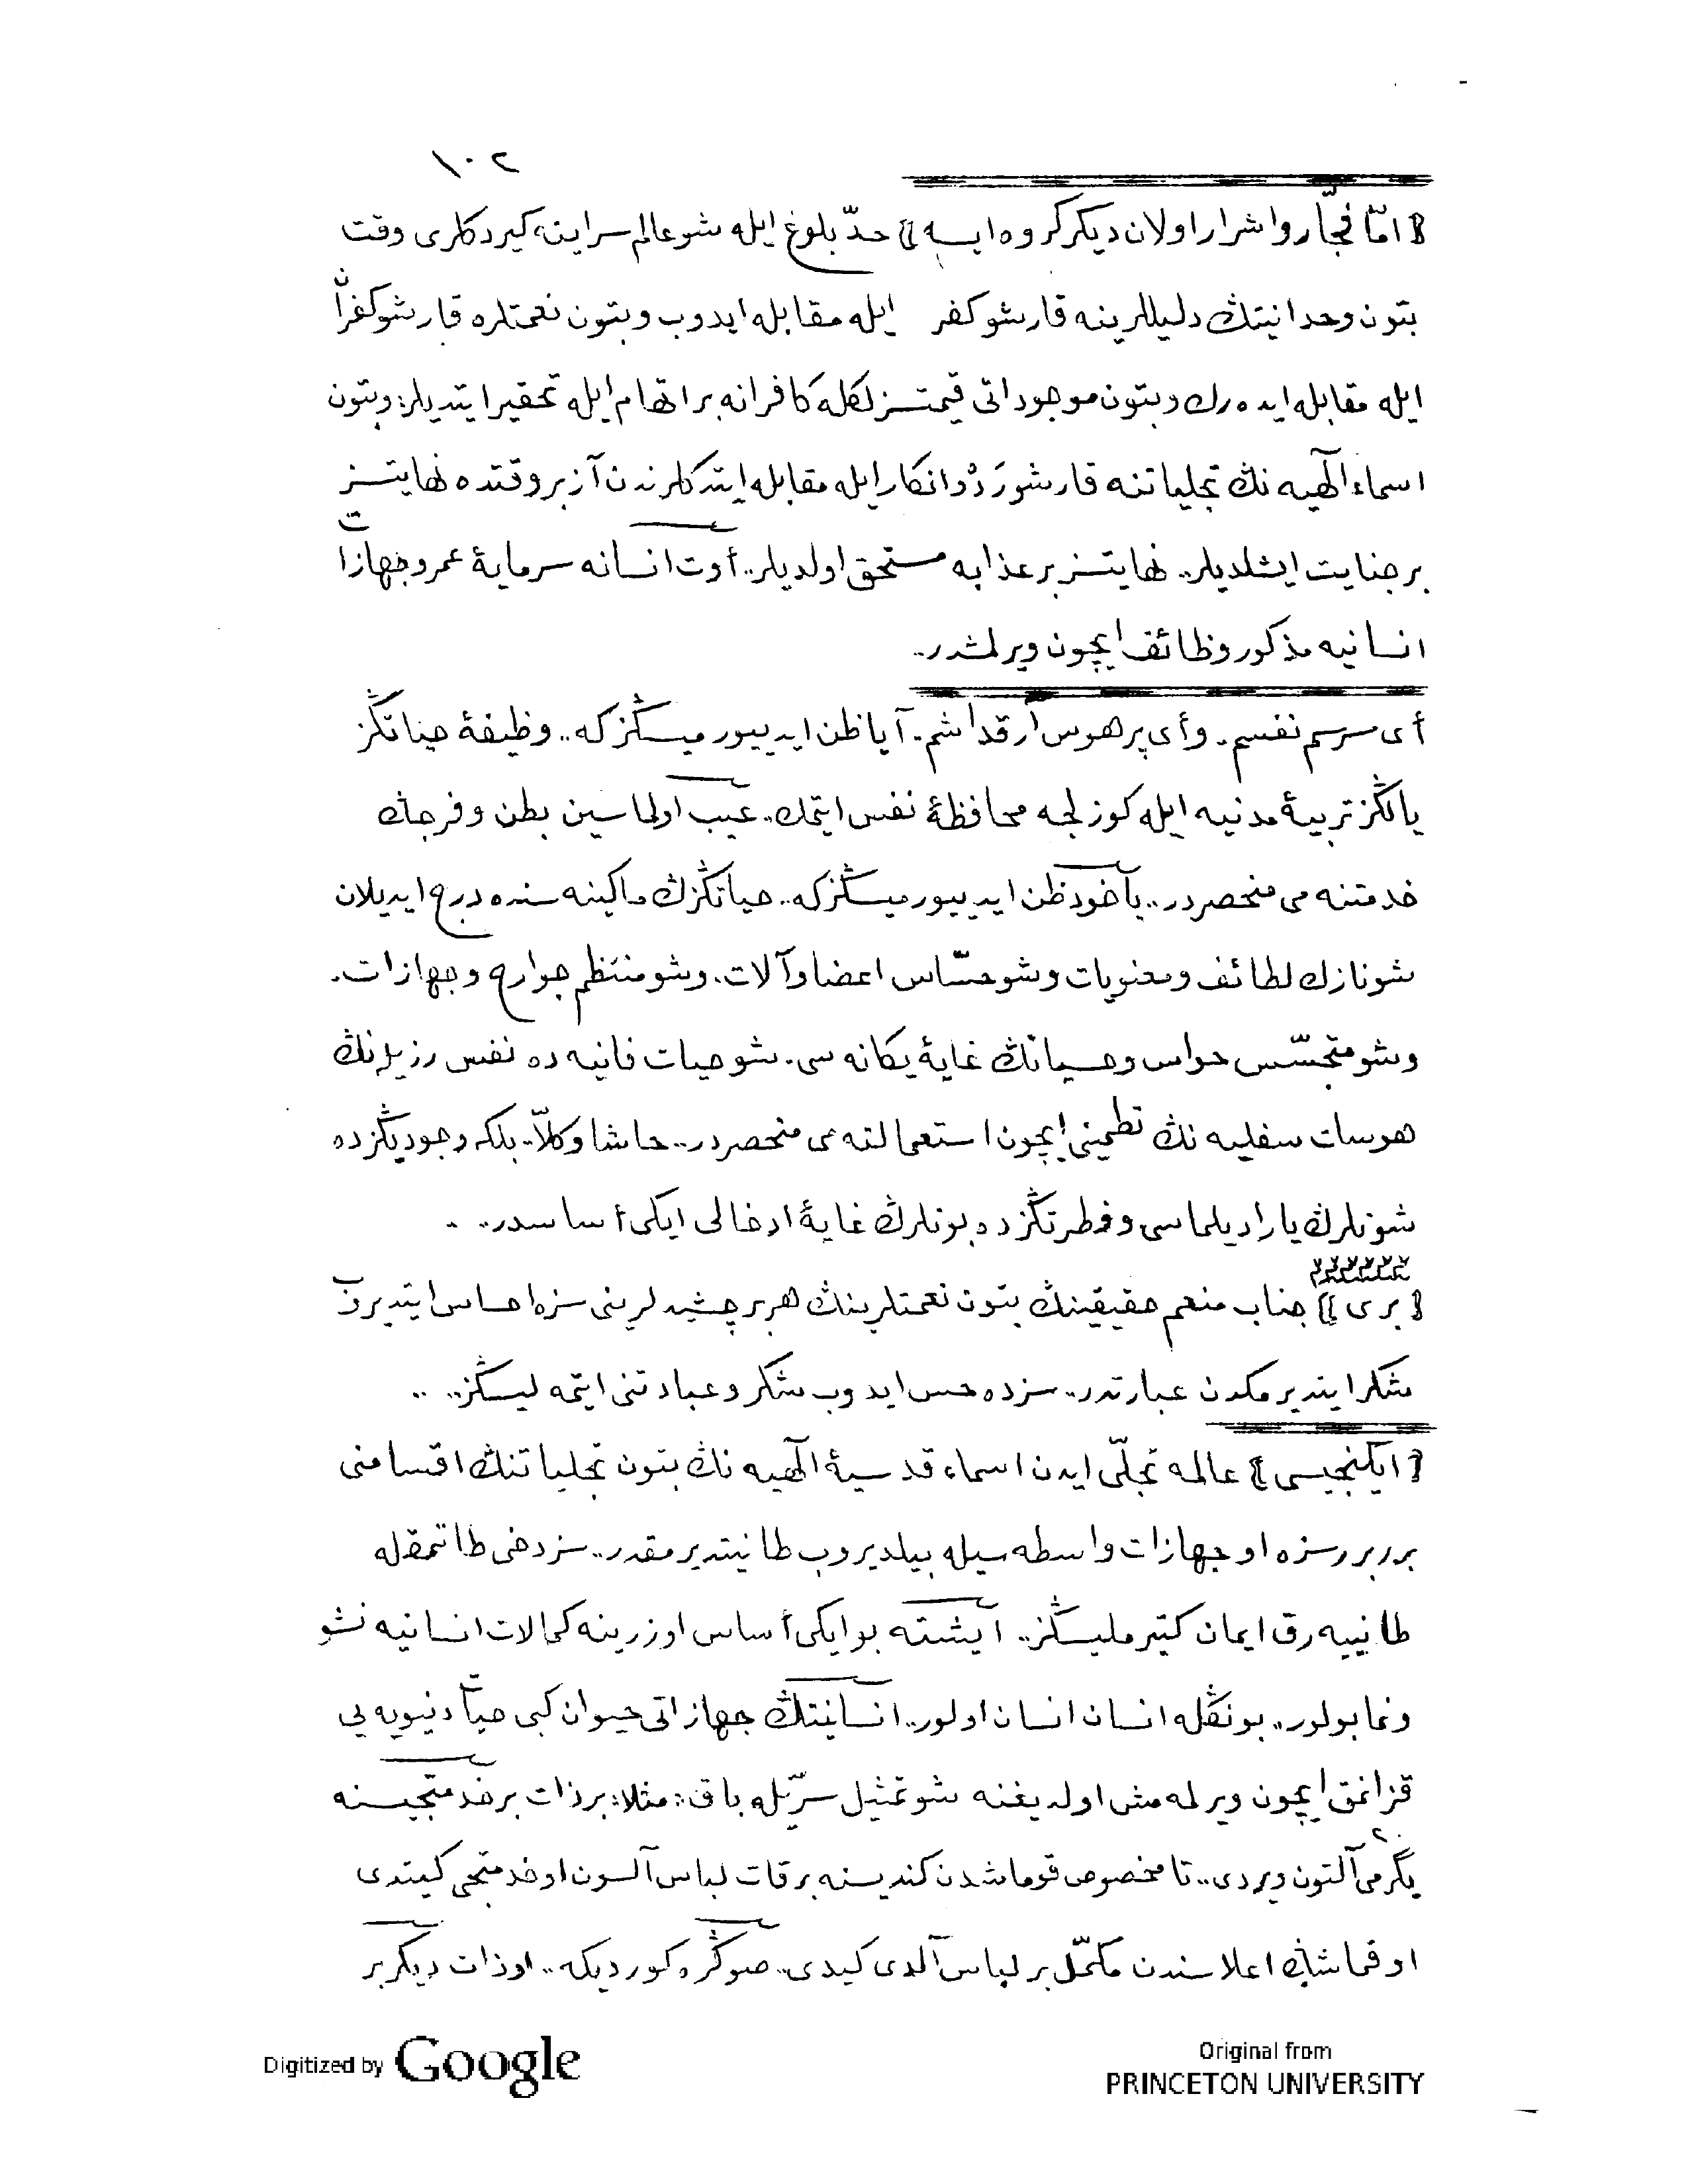 ١٠٢
﴿ امّا فجّار و اشرار اولان ديكر كروه ايسه ﴾ حدّ بلوغ ايله شو عالم سراينه كيردكلرى وقت
بتون وحدانيتڭ دليللرينه قارشو كفر ايله مقابله ايدوب وبتون نعمتلره قارشو كفران
ايله مقابله ايده رك وبتون موجوداتى قيمتسزلكله كافرانه بر اتهام ايله تحقير ايتديلر؛ وبتون
اسماء الٓهيه نڭ تجلياتنه قارشو رَدّ وانكار ايله مقابله ايتدكلرندن آز بر وقتده نهايتسز
بر جنايت ايشلديلر.. نهايتسز بر عذابه مستحق اولديلر.. أوت انسانه سرمايۀ عمر وجهازات
انسانيه مذكور وظائف ايچون ويرلمشدر..
أى سرسم نفسم. وأى پر هوس آرقداشم. آيا ظن ايدييورميسڭز كه.. وظيفۀ حياتڭز
يالڭز تربيۀ مدنيه ايله كوزلجه محافظۀ نفس ايتمك.. عيب اولماسين بطن و فرجڭ
خدمتنه مى منحصردر.. ياخود ظن ايدييورميسڭز كه.. حياتڭزڭ ماكينه سنده درج ايديلان
شو نازك لطائف ومعنويات وشو حسّاس اعضا وآلات. وشو منتظم جوارح وجهازات.
وشو متجسّس حواس وحسياتڭ غايۀ يكانه سى. شو حيات فانيه ده نفس رزيله نڭ
هوسات سفليه نڭ تطمينى ايچون استعمالنه مى منحصردر.. حاشا وكلاّ.. بلكه وجوديڭزده
شونلرڭ ياراديلماسى وفطرتڭزده بونلرڭ غايۀ ادخالى ايكى أساسدر..
﴿ برى ﴾ جناب منعم حقيقينڭ بتون نعمتلرينڭ هر بر چشيدلرينى سزه احساس ايتديروب
شكر ايتديرمكدن عبارتدر.. سزده حس ايدوب شكر وعبادتنى ايتمه ليسڭز..
﴿ ايكنجيسى ﴾ عالمه تجلّى ايدن اسماء قدسيۀ الٓهيه نڭ بتون تجلياتنڭ اقسامنى
برر برر سزه او جهازات واسطه سيله بيلديروب طانيتديرمقدر.. سز دخى طاتمقله
طانييه رق ايمان كتيرمليسڭز.. ايشته بو ايكى أساس اوزرينه كمالات انسانيه نشو
ونما بولور.. بونڭله انسان انسان اولور.. انسانيتڭ جهازاتى حيوان كبى حيات دنيويه يى
قزانمق ايچون ويرلمه مش اولديغنه شو تمثيل سرّيله باق: مثلا: بر ذات بر خدمتجيسنه
٢٠
يگرمى آلتون ويردى.. تا مخصوص قوماشدن كنديسنه بر قات لباس آلسون او خدمتجى كيتدى
او قماشڭ اعلاسندن مكمّل بر لباس آلدى كيدى.. صوڭره كورديكه.. او ذات ديكر بر
Digitized by Google
Original from
PRINCETON UNIVERSITY